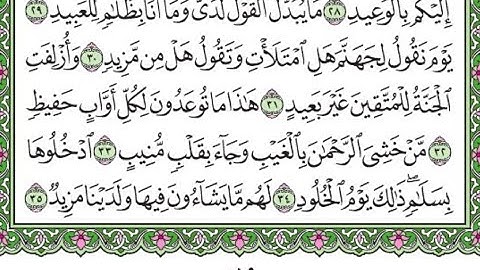 إِلَيْكُم بِالْوَعِيدِ ٢٨ مَا يُبَدَّلُ الْقَوْلُ لَدَيَّ وَمَا أَنَا بِظَلَّامٍ لِّلْعَبِيدِ ٢٩
يَوْمَ نَقُولُ لِجَهَنَّمَ هَلِ امْتَلَأْتِ وَتَقُولُ هَلْ مِن مَّزِيدٍ ٣٠ وَأُزْلِفَتِ
الْجَنَّةُ لِلْمُتَّقِينَ غَيْرَ بَعِيدٍ ٣١ هَٰذَا مَا تُوعَدُونَ لِكُلِّ أَوَّابٍ حَفِيظٍ
٣٢ مَّنْ خَشِيَ الرَّحْمَٰنَ بِالْغَيْبِ وَجَاءَ بِقَلْبٍ مُّنِيبٍ ٣٣ ادْخُلُوهَا
بِسَلَامٍ ۖ ذَٰلِكَ يَوْمُ الْخُلُودِ ٣٤ لَهُم مَّا يَشَاءُونَ فِيهَا وَلَدَيْنَا مَزِيدٌ ٣٥